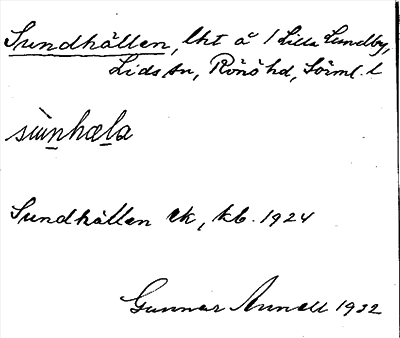 Sundhällen, lht å 1 Lilla Lundby,
Lids sn, Rönö hd, Sörml. l
sùnhæla
Sundhällen ek, kb. 1924
Gunnar Annell 1932